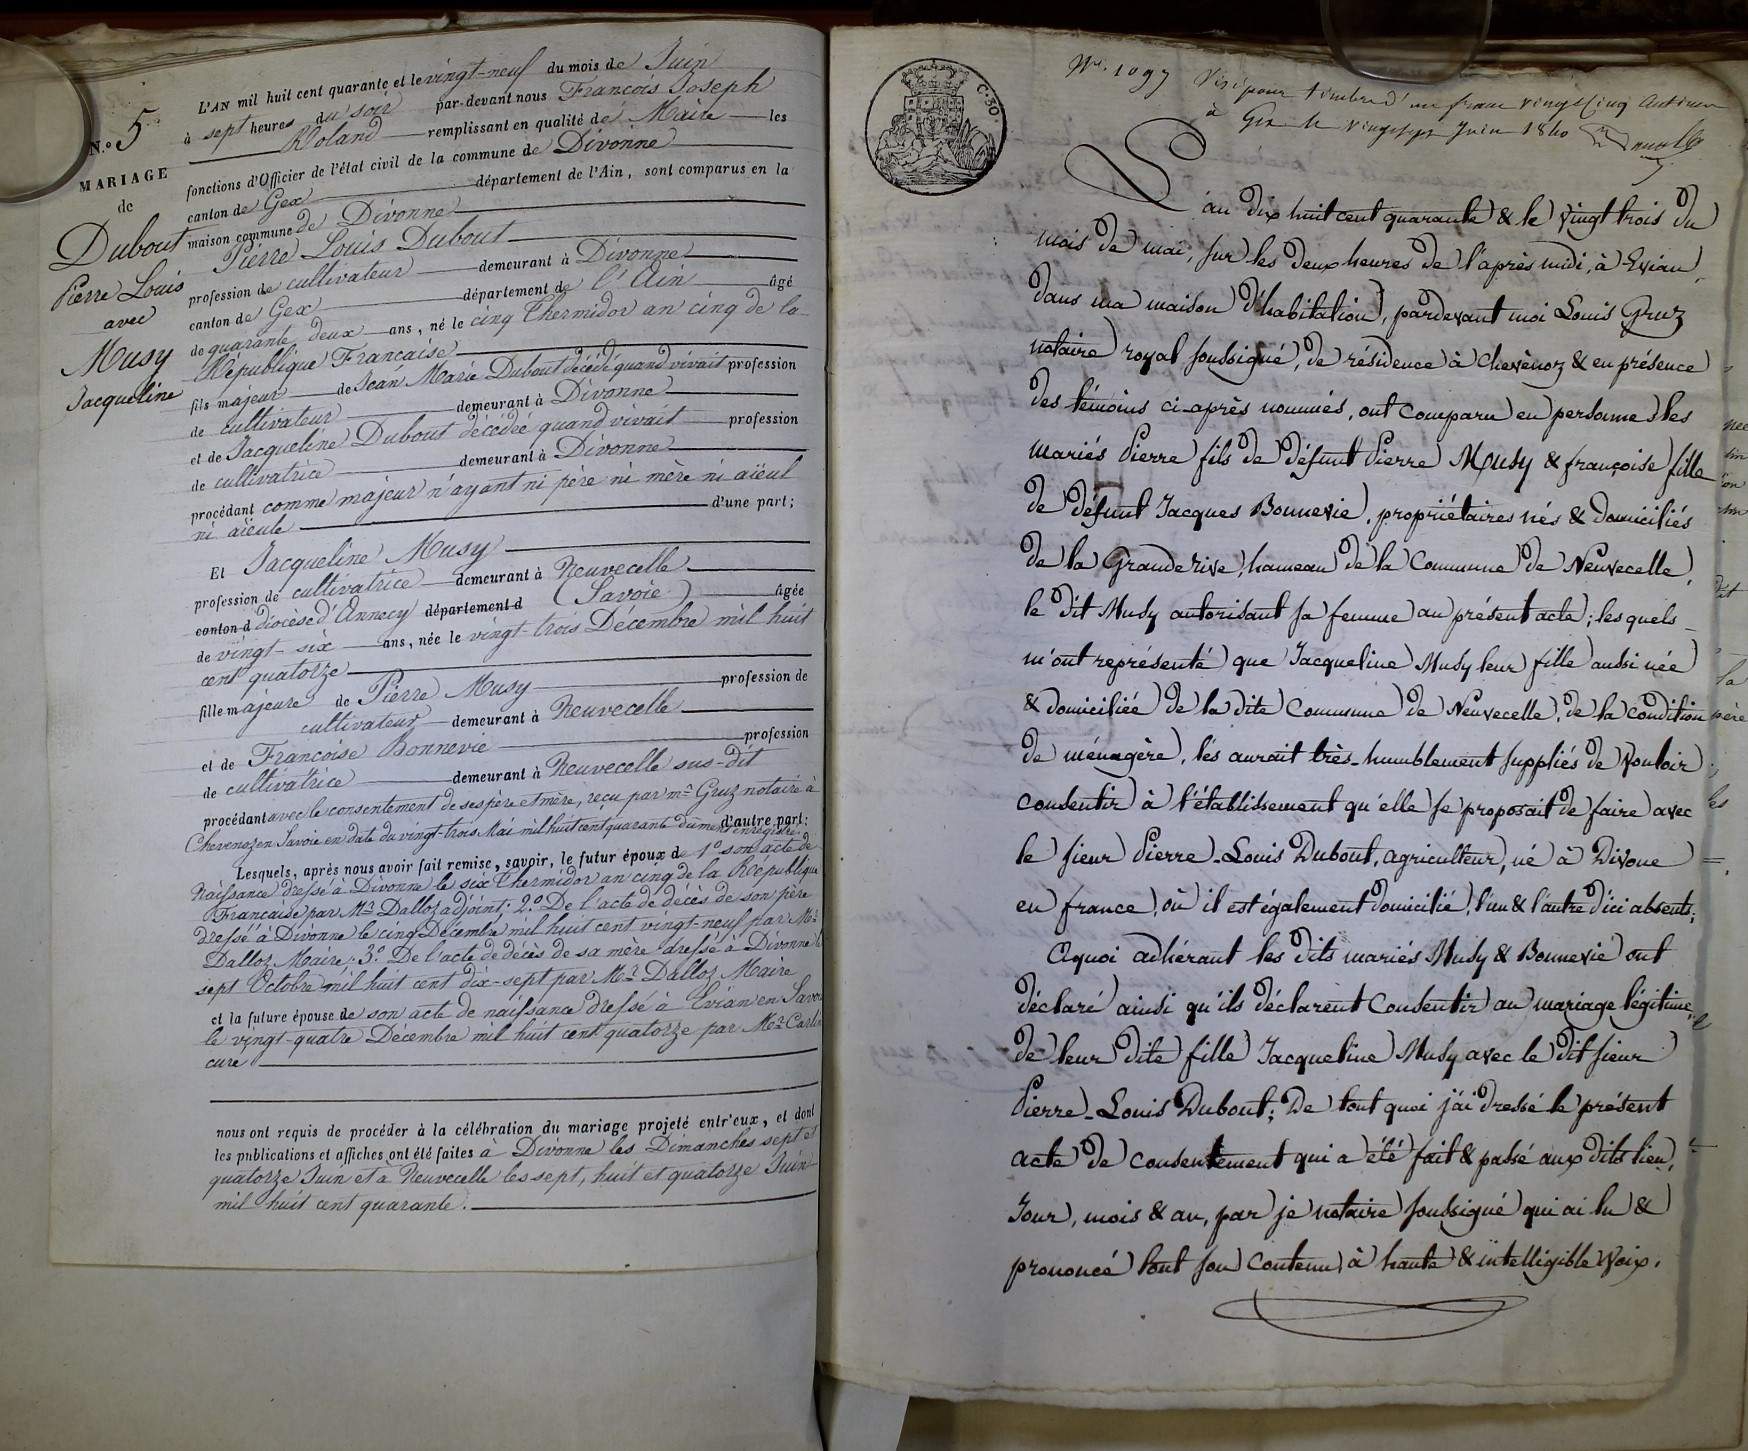 N.º 5
MARIAGE
de
Dubout
Pierre Louis
avec
Musy
Jacqueline
L'AN mil huit cent quarante et le vingt-neuf du mois de Juin
à sept heures du soir par-devant nous François Joseph
Roland remplissant en qualité de Maire les
fonctions d'Officier de l'état civil de la commune de Divonne
canton de Gex département de l'Ain, sont comparus en la
maison commune de Divonne
Pierre Louis Dubout
profession de cultivateur demeurant à Divonne
canton de Gex département de l'Ain âgé
de quarante deux ans, né le cinq Thermidor an cinq de la
République Française
fils majeur de Jean Marie Dubout décédé quand vivait profession
de cultivateur demeurant à Divonne
et de Jacqueline Dubout décédée quand vivait profession
de cultivatrice demeurant à Divonne
procédant comme majeur n'ayant ni père ni mère ni aïeul
ni aïeule d'une part;
Et Jacqueline Musy
profession de cultivatrice demeurant à Neuvecelle
canton d diocèse d'Annecy département d (Savoie) âgée
de vingt-six ans, née le vingt-trois Décembre mil huit
cent quatorze
fille majeure de Pierre Musy profession de
cultivateur demeurant à Neuvecelle
et de Françoise Bonnevie profession
de cultivatrice demeurant à Neuvecelle sus-dit
procédant avec le consentement de ses père et mère, reçu par mre Gruz notaire à
Chevenoz en Savoie en date du vingt-trois Mai mil huit cent quarante dûment enregistré d'autre part;
Lesquels, après nous avoir fait remise, savoir, le futur époux d 1º son acte de
Naissance dressé à Divonne le six Thermidor an cinq de la République
Française par Mr Dalloz adjoint; 2º De l'acte de décès de son père
dressé à Divonne le cinq Décembre mil huit cent vingt-neuf par Mr
Dalloz Maire; 3º De l'acte de décès de sa mère dressé à Divonne le
sept Octobre mil huit cent dix-sept par Mr Dalloz Maire
et la future épouse de son acte de naissance dressé à Evian en Savoie
le vingt-quatre Décembre mil huit cent quatorze par Mr Carlin
curé
nous ont requis de procéder à la célébration du mariage projeté entr'eux, et dont
les publications et affiches ont été faites à Divonne les Dimanches sept et
quatorze Juin et à Neuvecelle les sept, huit et quatorze Juin
mil huit cent quarante.
C. 30
No. 1097 Visé pour timbre d' un franc vingt cinq centimes
à Gex le vingt sept Juin 1840
L'an dix huit cent quarante & le vingt trois du
mois de mai, sur les deux heures de l'après midi, à Evian,
dans ma maison d'habitation, pardevant moi Louis Gruz
notaire royal soussigné, de résidence à Chevènoz & en présence
des témoins ci-après nommés, ont comparu en personne les
mariés Pierre fils de défunt Pierre Musy & françoise fille
de défunt Jacques Bonnevie, propriétaires nés & domiciliés
de la Grande rive, hameau de la Commune de Neuvecelle,
le dit Musy autorisant sa femme au présent acte; les quels
m'ont représenté que Jacqueline Musy leur fille aussi née
& domiciliée de la dite Commune de Neuvecelle, de la condition
de ménagère, les aurait très-humblement suppliés de vouloir
consentir à l'établissement qu'elle se proposait de faire avec
le sieur Pierre-Louis Dubout, agriculteur, né à Divone
en france, où il est également domicilié, l'un & l'autre d'ici absents;
Aquoi adhérant les dits mariés Musy & Bonnevie ont
déclaré ainsi qu'ils déclarent Consentir au mariage légitime
de leur dite fille Jacqueline Musy avec le dit sieur
Pierre-Louis Dubout; De tout quoi j'ai dressé le présent
acte de consentement qui a été fait & passé aux dits lieu,
Jour, mois & an, par je notaire soussigné qui ai lu &
prononcé tout son contenu à haute & intelligible voix.